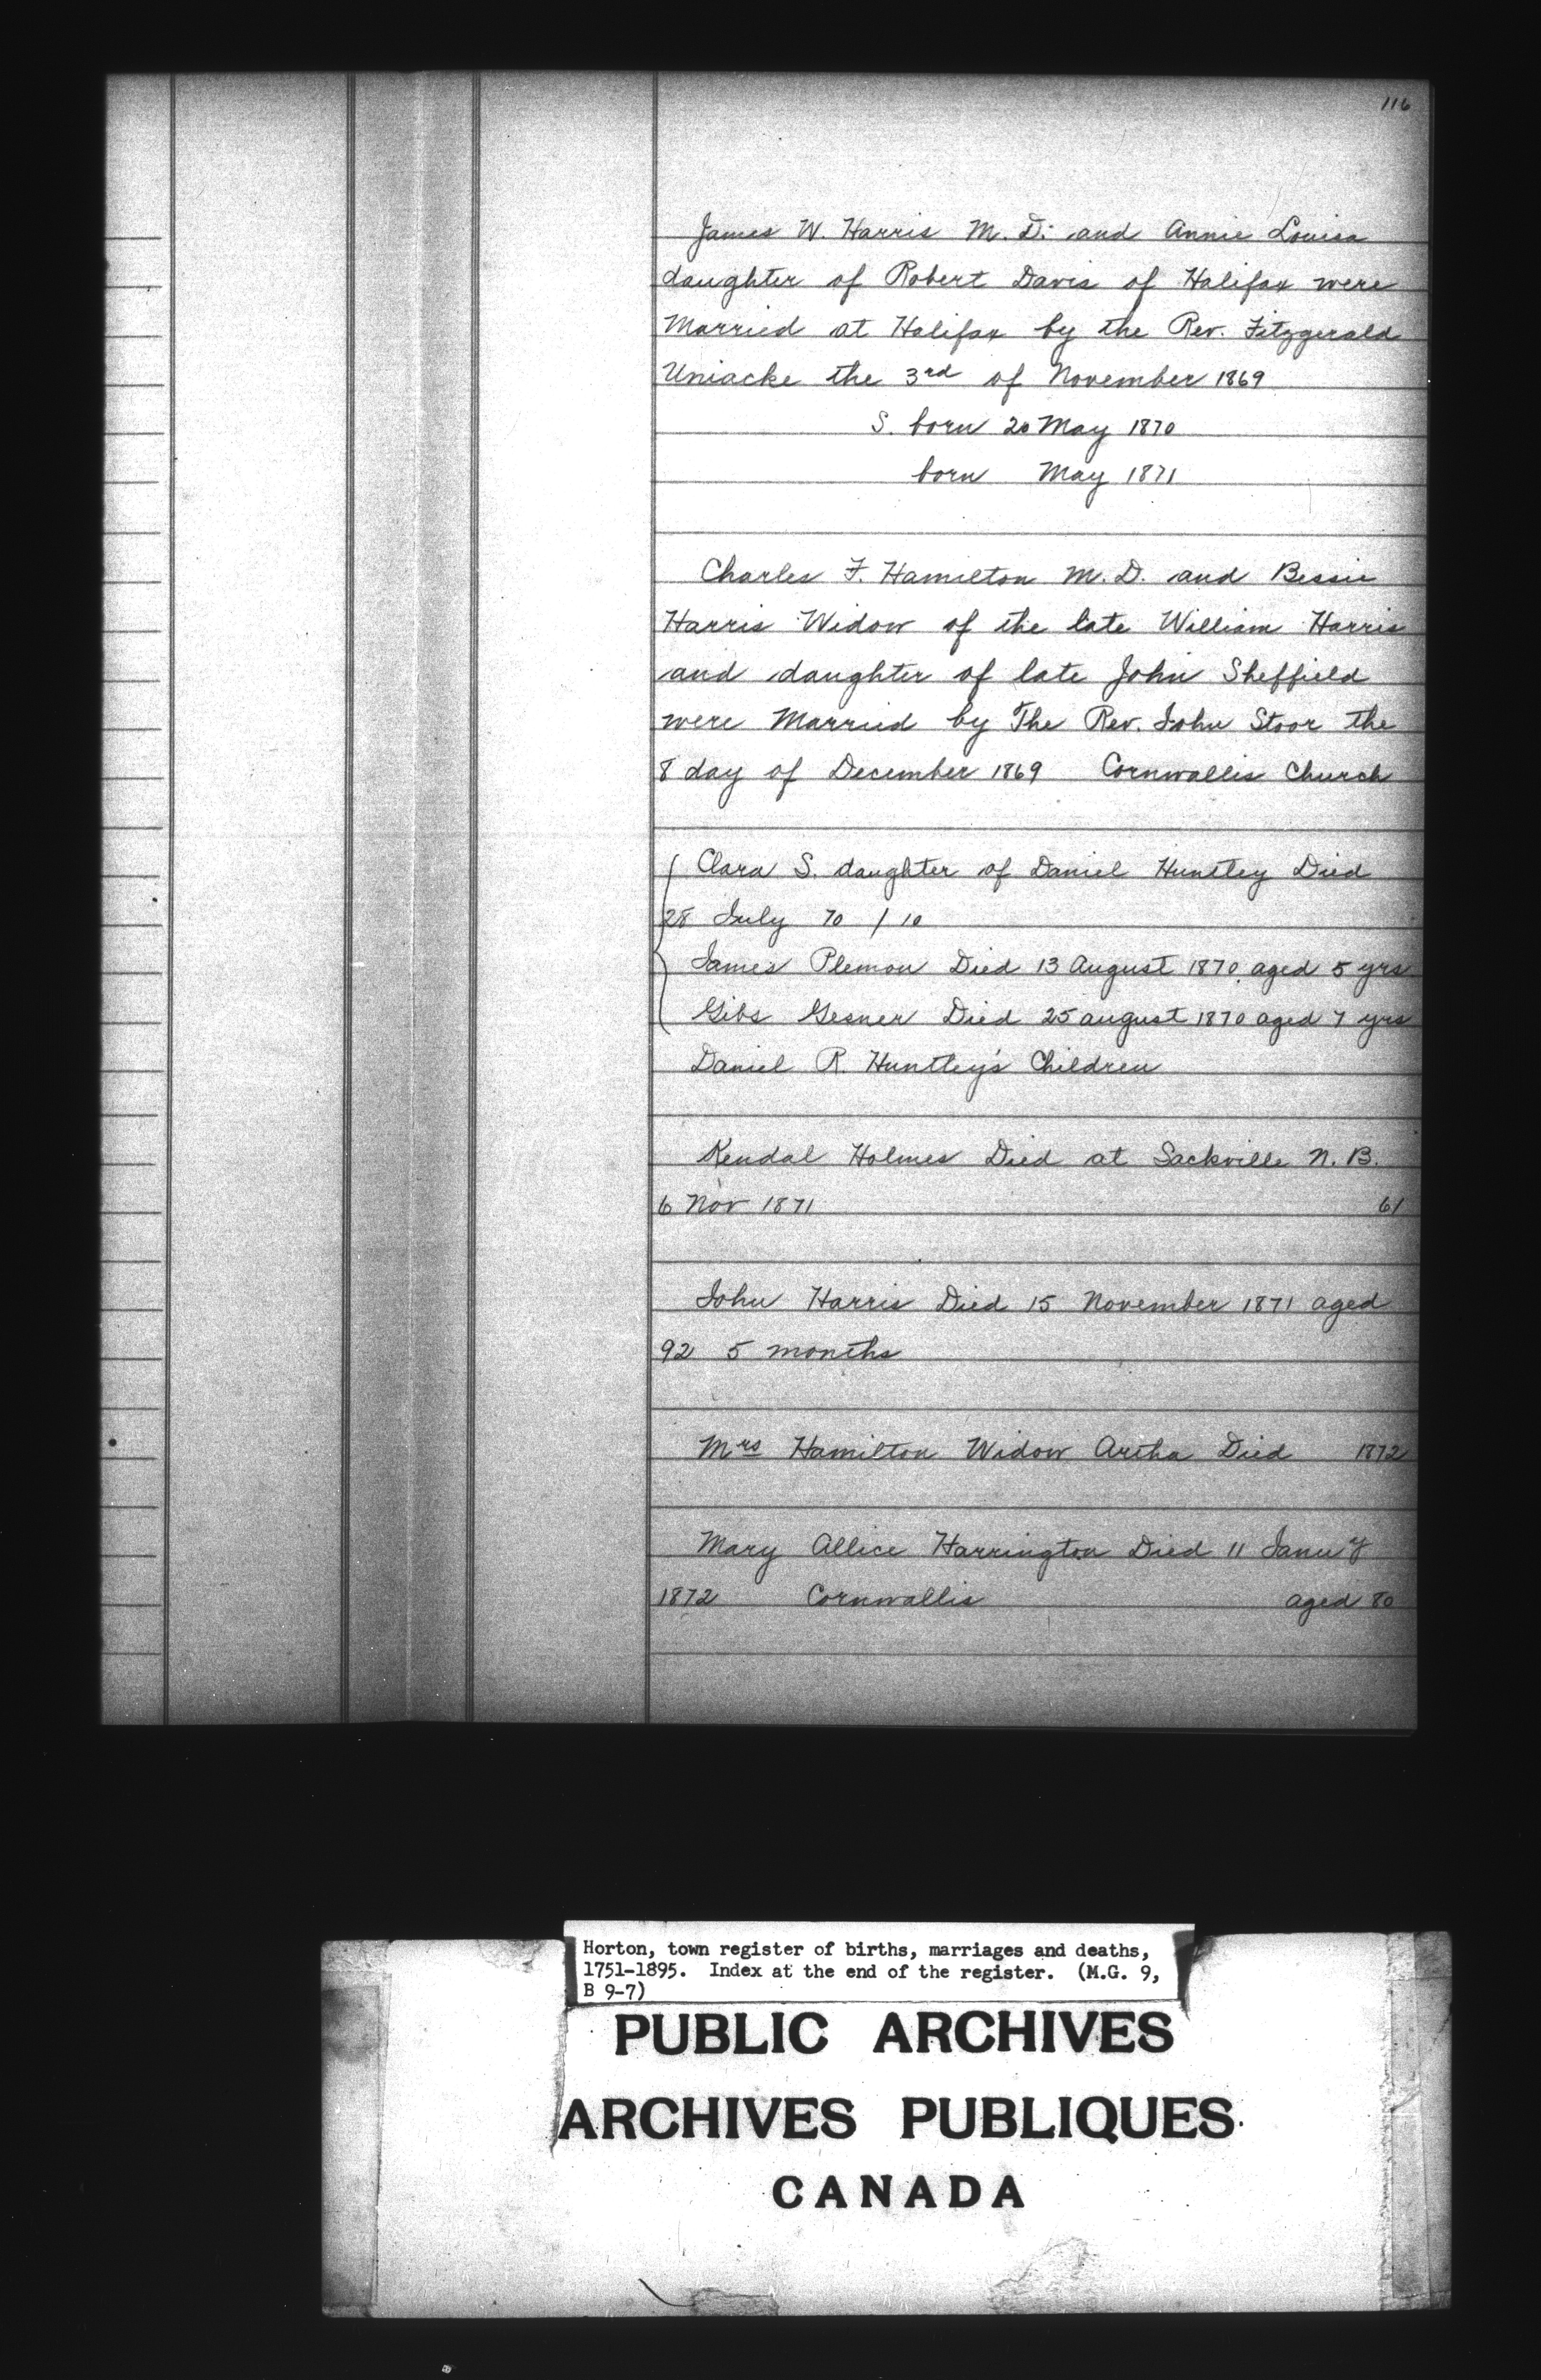 116
James W. Harris M. D. and Annie Louisa
daughter of Robert Davis of Halifax were
Married at Halifax by the Rev. Fitzgerald
Uniacke the 3rd of November 1869
S. born 20 May 1870
born May 1871
Charles F. Hamilton M. D. and Bessie
Harris Widow of the late William Harris
and daughter of late John Sheffield
were Married by The Rev. John Stoor the
8 day of December 1869 Cornwallis Church
Clara S. daughter of Daniel Huntley Died
28 July 70 / 10
James Plemon Died 13 August 1870 aged 5 yrs
Gibs Gesner Died 25 august 1870 aged 7 yrs
Daniel R. Huntley's Children
Kendal Holmes Died at Sackville N. B.
6 Nov 1871 61
John Harris Died 15 November 1871 aged
92 5 months
Mrs Hamilton Widow Artha Died 1872
Mary Allice Harrington Died 11 Janu y
1872 Cornwallis aged 80
Horton, town register of births, marriages and deaths,
1751-1895. Index at the end of the register. (M.G. 9,
B 9-7)
PUBLIC ARCHIVES
ARCHIVES PUBLIQUES
CANADA